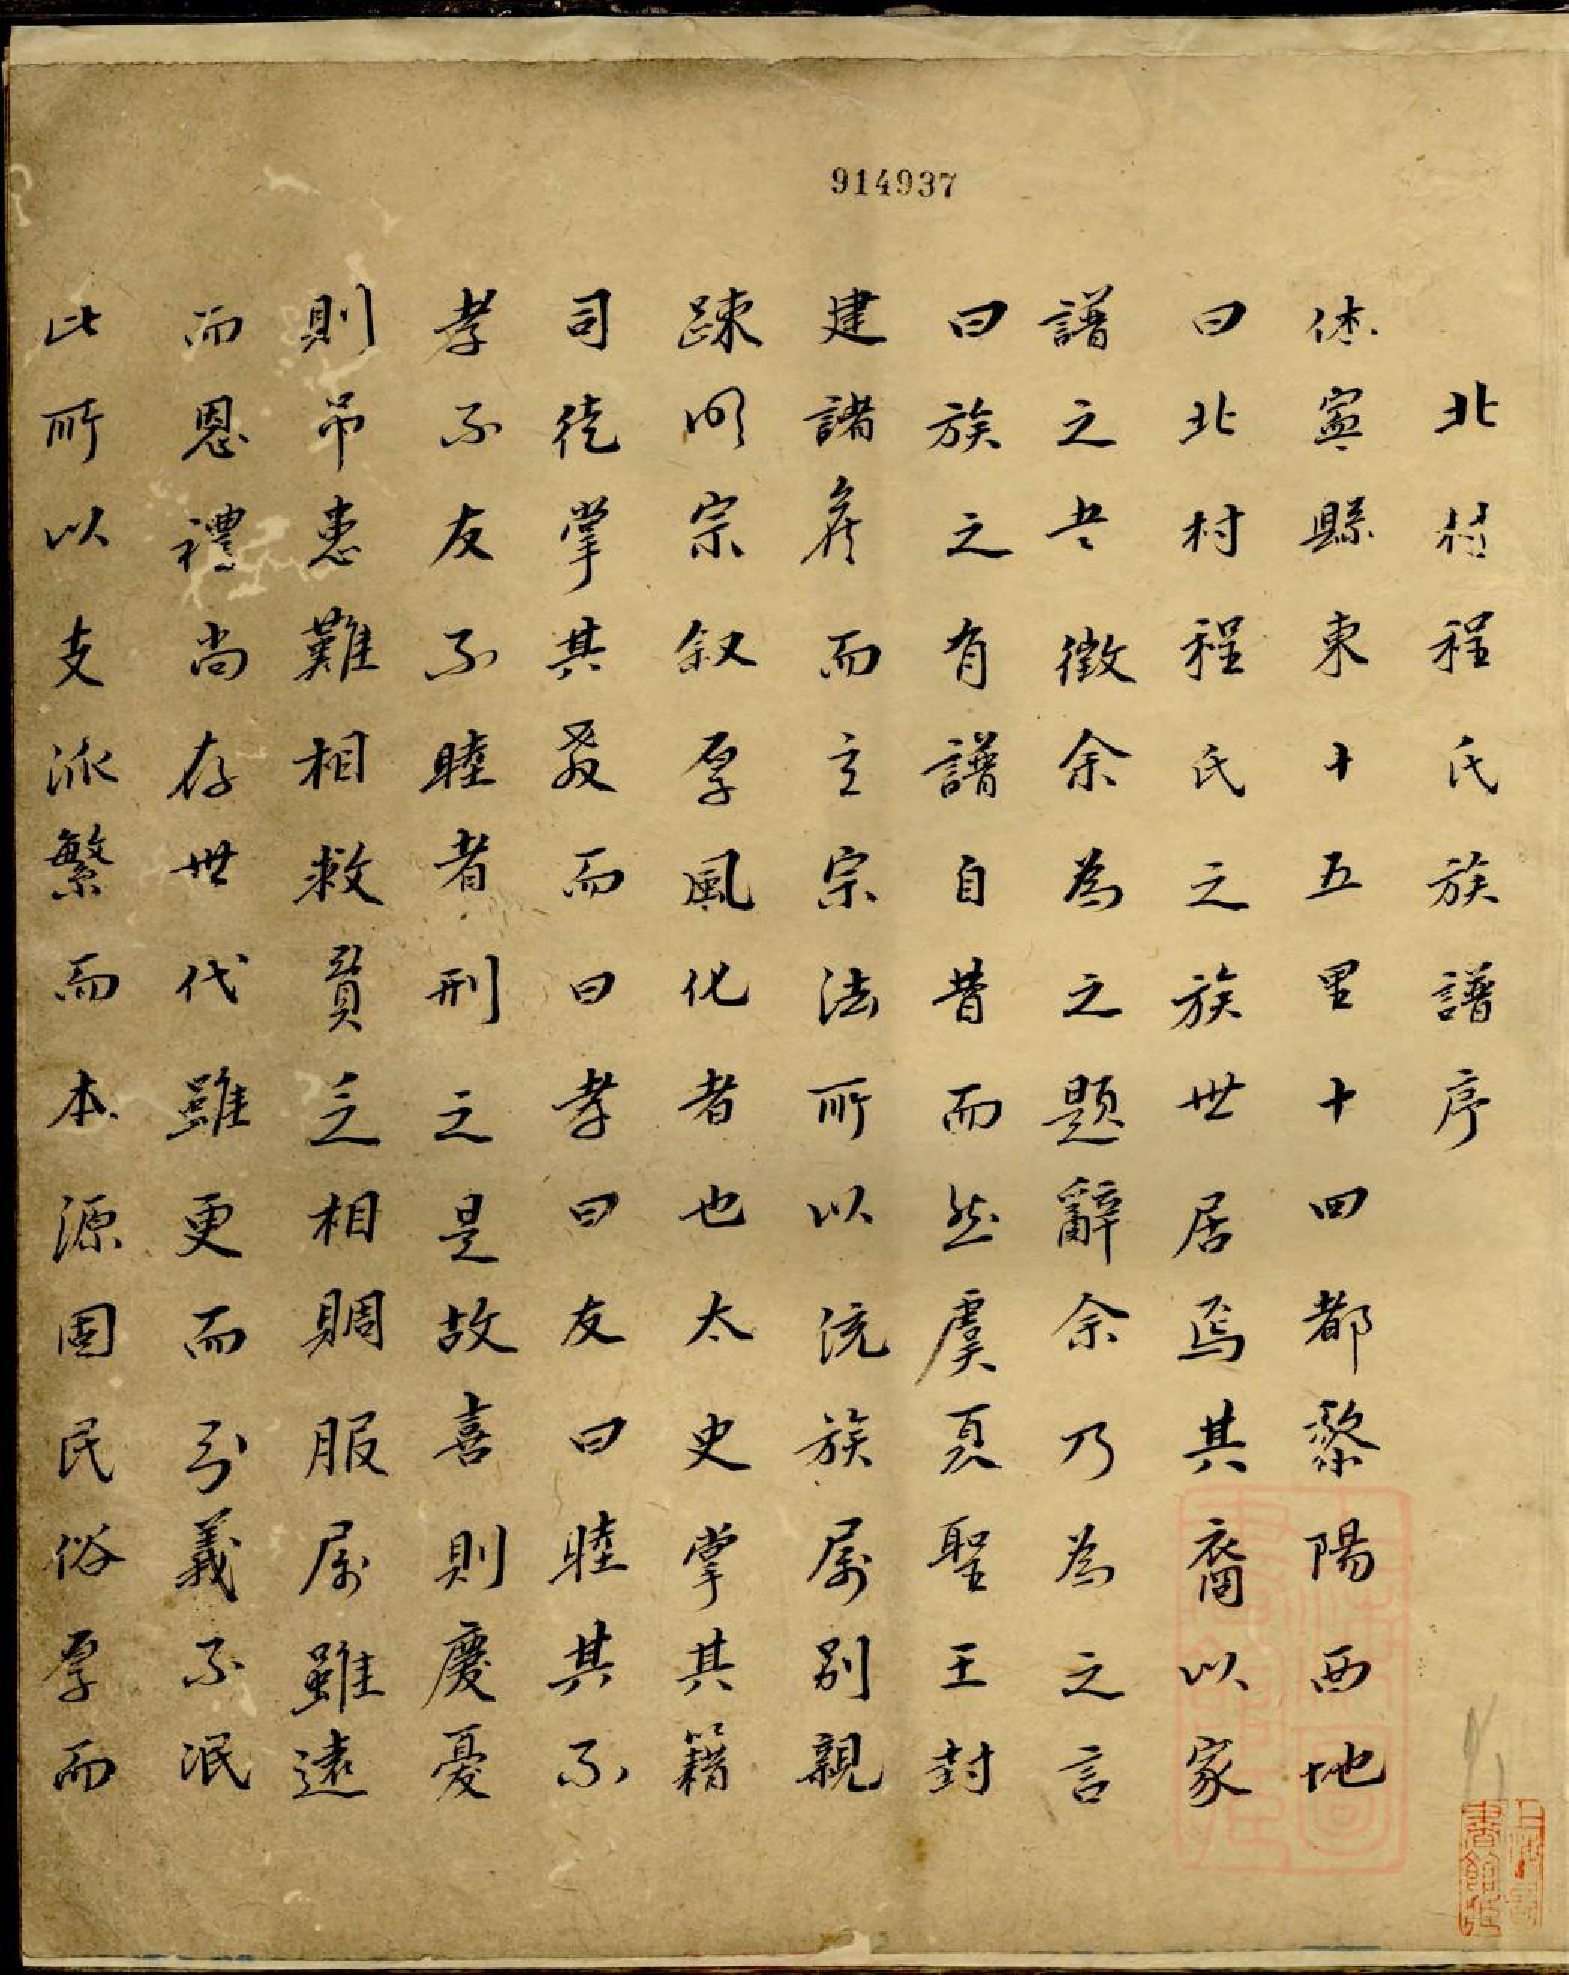 914937
北村程氏族譜序
休寧縣東十五里十四都黎陽西地
曰北村程氏之族世居焉其裔以家
譜之文徵余為之題辭余乃為之言
曰族之有譜自昔而然虞夏聖王封
建諸矦而立宗法所以統族属别親
踈明宗叙厚風化者也太史掌其籍
司徒掌其教而曰孝曰友曰睦其不
孝不友不睦者刑之是故喜則慶憂
則吊患難相救貧乏相賙服属雖遠
而恩禮尚存世代雖更而分義不泯
此所以支派繁而本源固民俗厚而